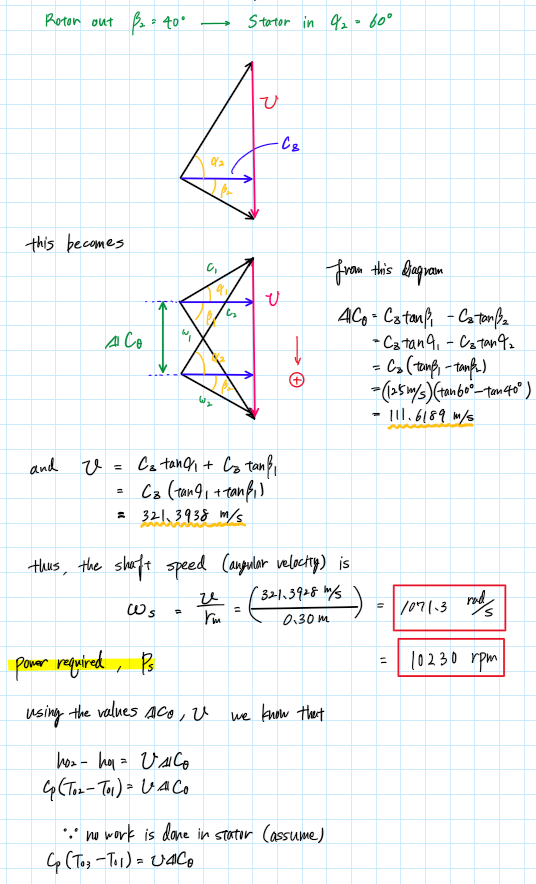 Rotor out β₂ = 40° → Stator in α₂ = 60°
U
C₃
α₂
β₂
this becomes
C₁
α₁
U
β₁
C₂
ΔC_θ
w₁
α₂
β₂
w₂
⊕
from this diagram
ΔC_θ = C₃tanβ₁ - C₃tanβ₂
= C₃tanα₁ - C₃tanα₂
= C₃(tanβ₁ - tanβ₂)
= (125m/s)(tan60° - tan40°)
= 111.6189 m/s
and U = C₃tanα₁ + C₃tanβ₁
= C₃(tanα₁ + tanβ₁)
= 321.3938 m/s
thus, the shaft speed (angular velocity) is
ω_s = U/r_m = (321.3928 m/s / 0.30 m) = 1071.3 rad/s
= 10230 rpm
power required, P_s
using the values ΔC_θ, U we know that
h₀₂ - h₀₁ = UΔC_θ
C_p(T₀₂ - T₀₁) = UΔC_θ
∵ no work is done in stator (assume)
C_p(T₀₃ - T₀₁) = UΔC_θ